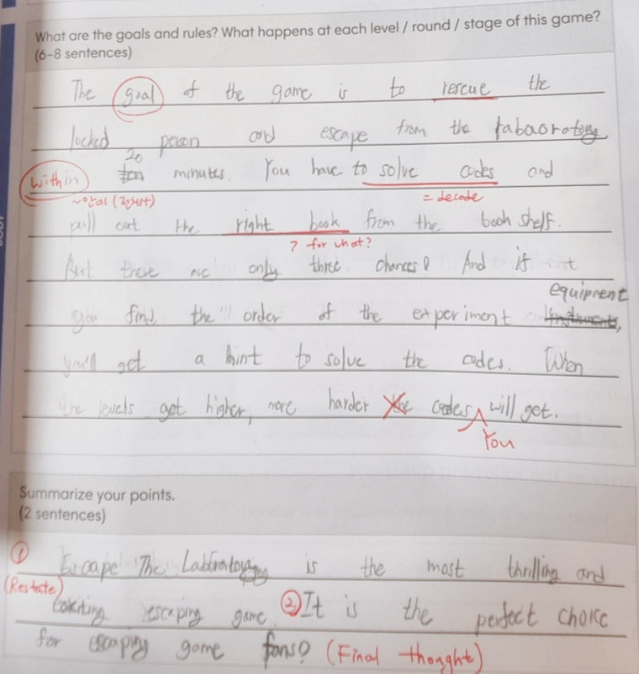 What are the goals and rules? What happens at each level / round / stage of this game?
(6-8 sentences)
The goal of the game is to rescue the
locked person and escape from the tabaoratory
within 20 minutes. You have to solve codes and
= decode
pull out the right book from the book shelf.
? for what?
But there are only three chances! And if
equipment
you find the order of the experiment
you'll get a hint to solve the codes. When
the levels get higher, more harder codes will get.
You
Summarize your points.
(2 sentences)
① Escape The Labaratory is the most thrilling and
(Restate)
exciting escaping game. ② It is the perfect choice
for escaping game fans! (Final thought)